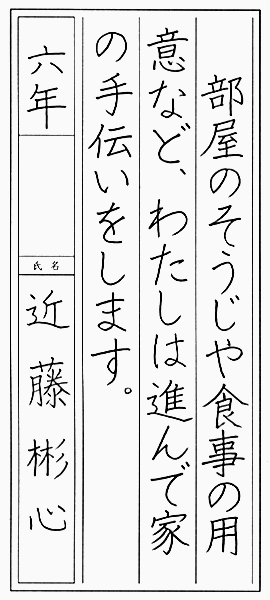 部屋のそうじや食事の用
意など、わたしは進んで家
の手伝いをします。
六年
氏名
近藤彬心